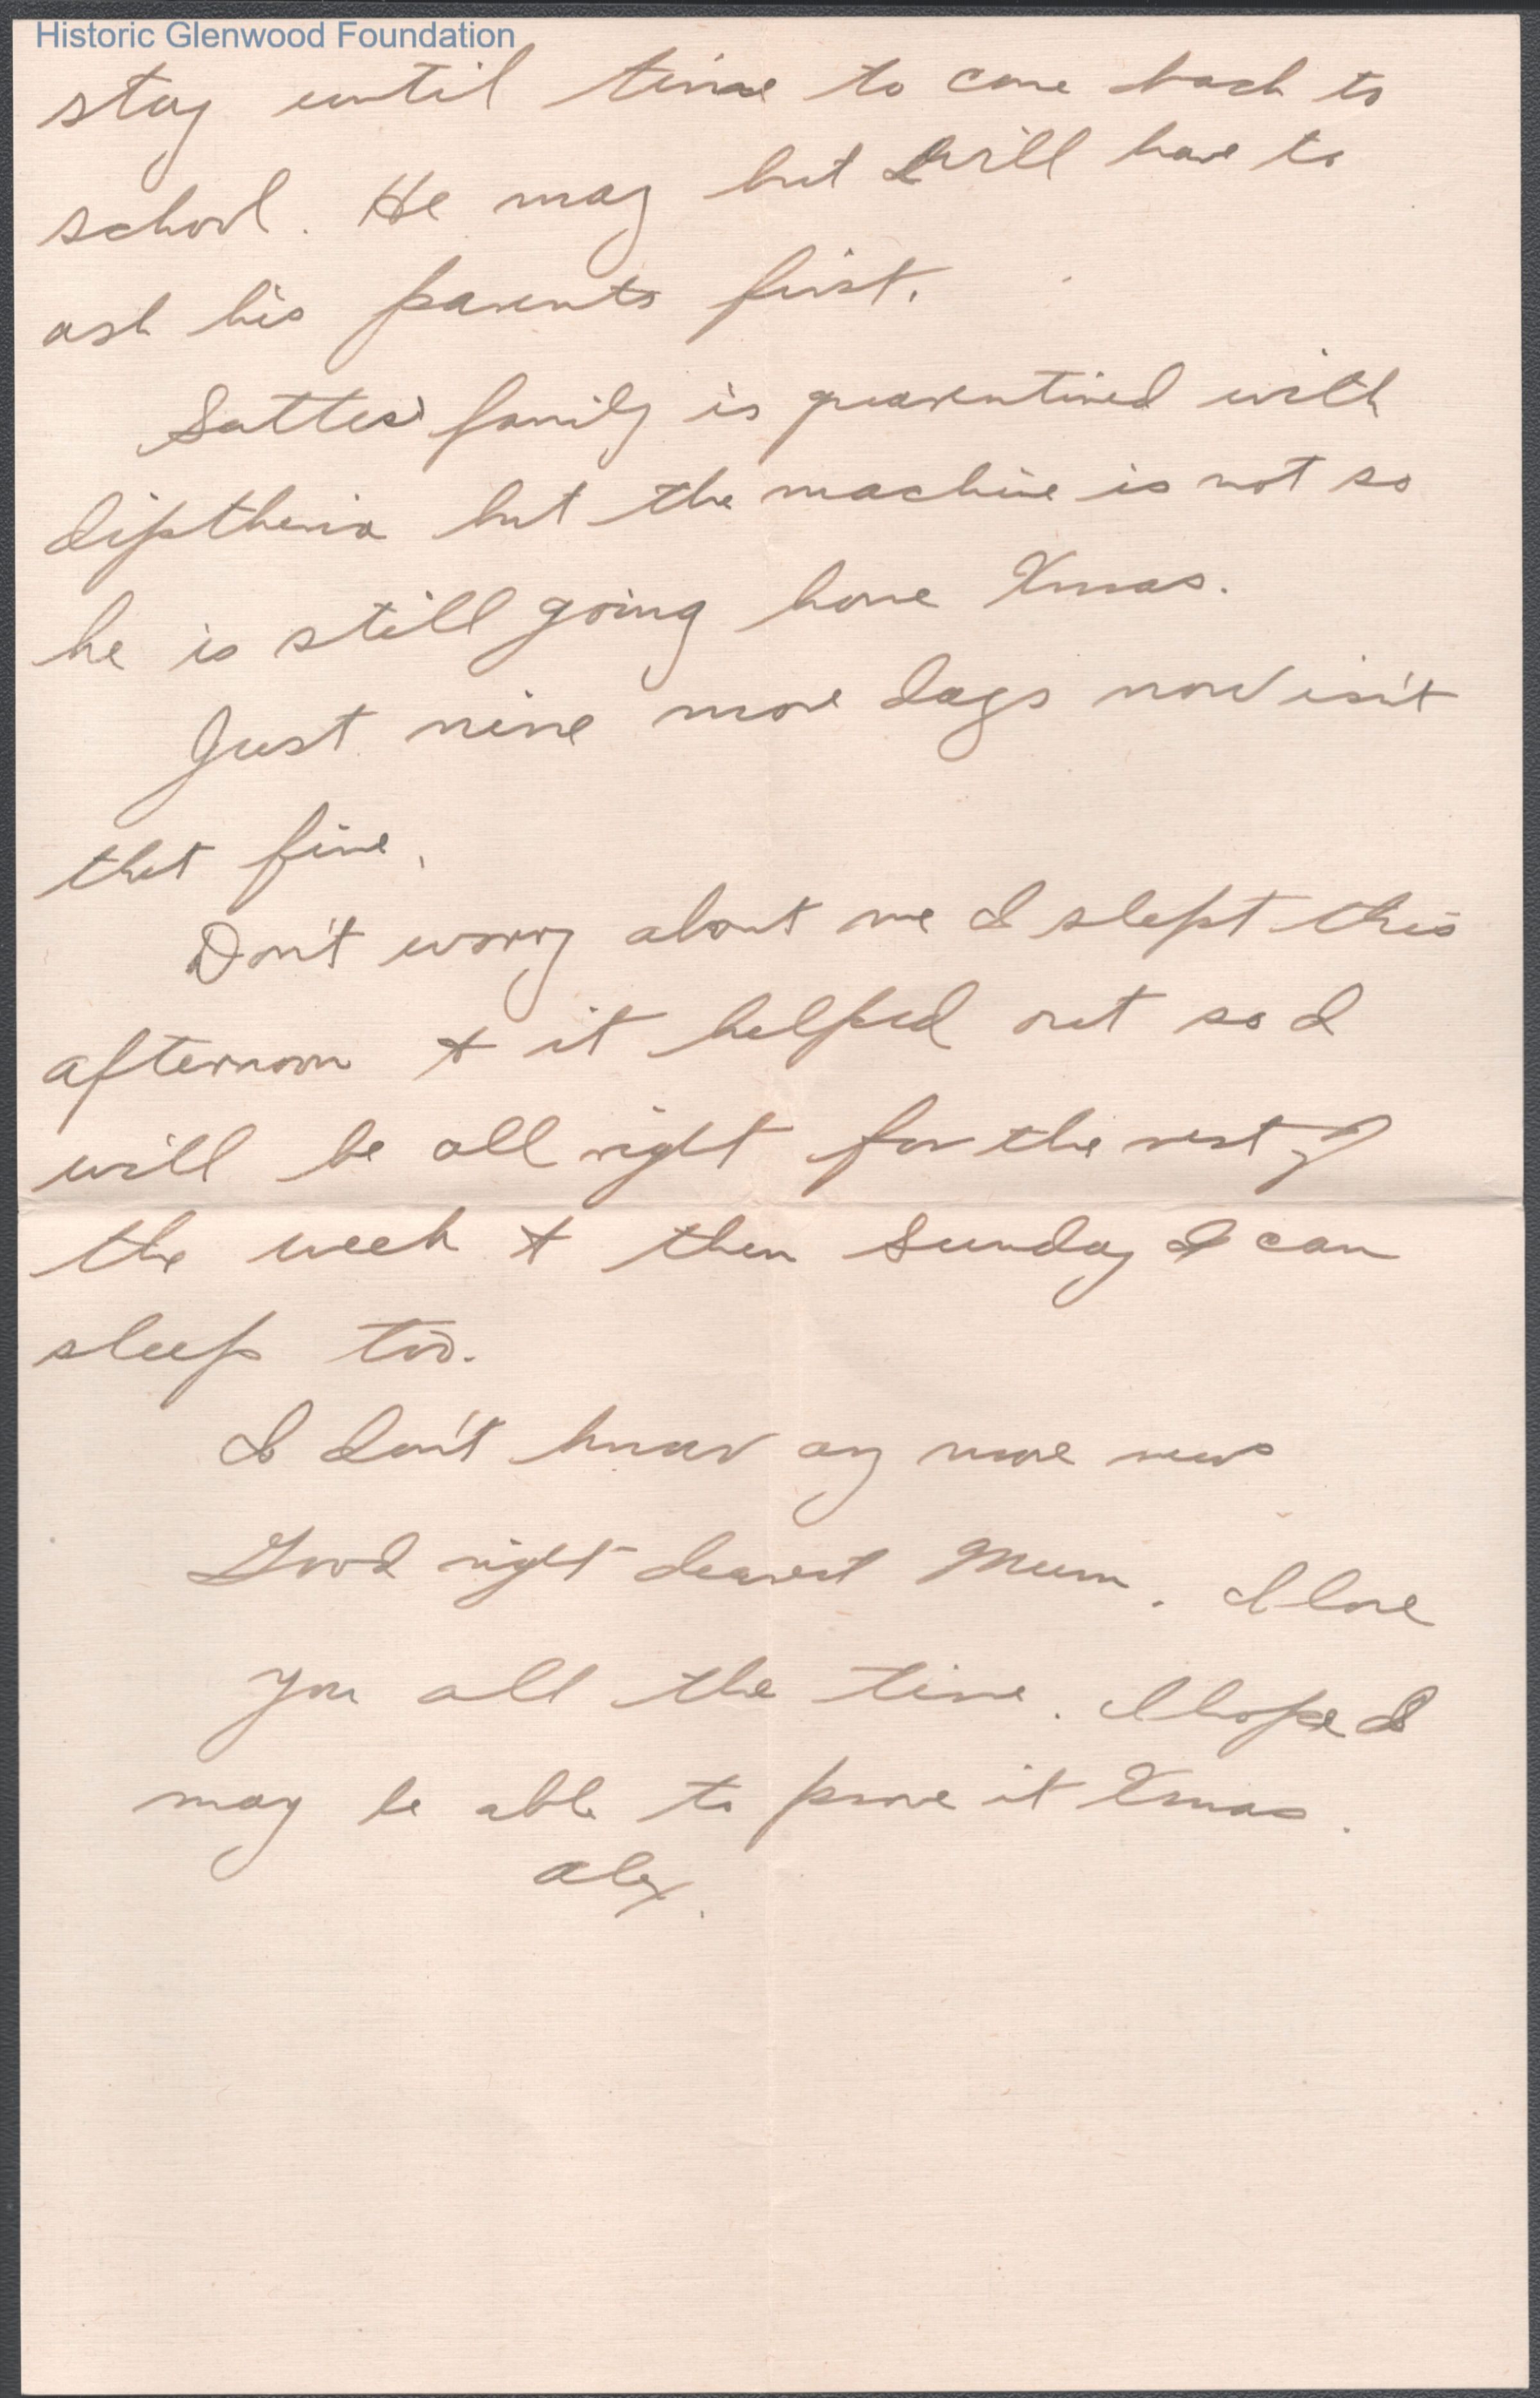 Historic Glenwood Foundation
stay until time to come back to
school. He may but will have to
ask his parents first.
Sattes' family is quarentined with
diptheria but the machine is not so
he is still going home Xmas.
Just nine more days now isn't
that fine.
Don't worry about me I slept this
afternoon & it helped out so I
will be all right for the rest of
the week & then Sunday I can
sleep too.
I don't know any more news
Good night dearest Mum. I love
you all the time. I hope I
may be able to prove it Xmas.
Alex.